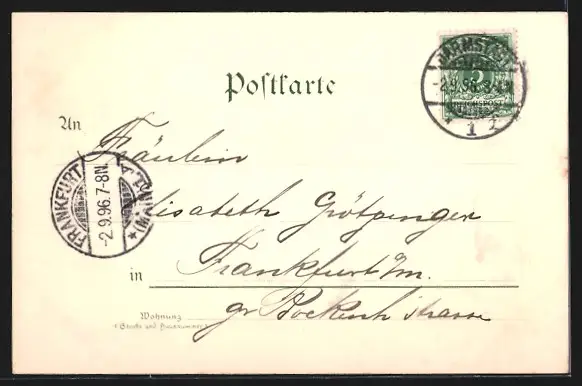 Postkarte
DARMSTADT
-2.9.96. 3-4N.
* 1 *
5
REICHSPOST
An
Fräulein
Elisabeth Grötzinger
FRANKFURT
-2.9.96.7-8N.
* (MAIN) 1
in
Frankfurt a/m.
gr Bockenh strasse
Wohnung
(Straße und Hausnummer)